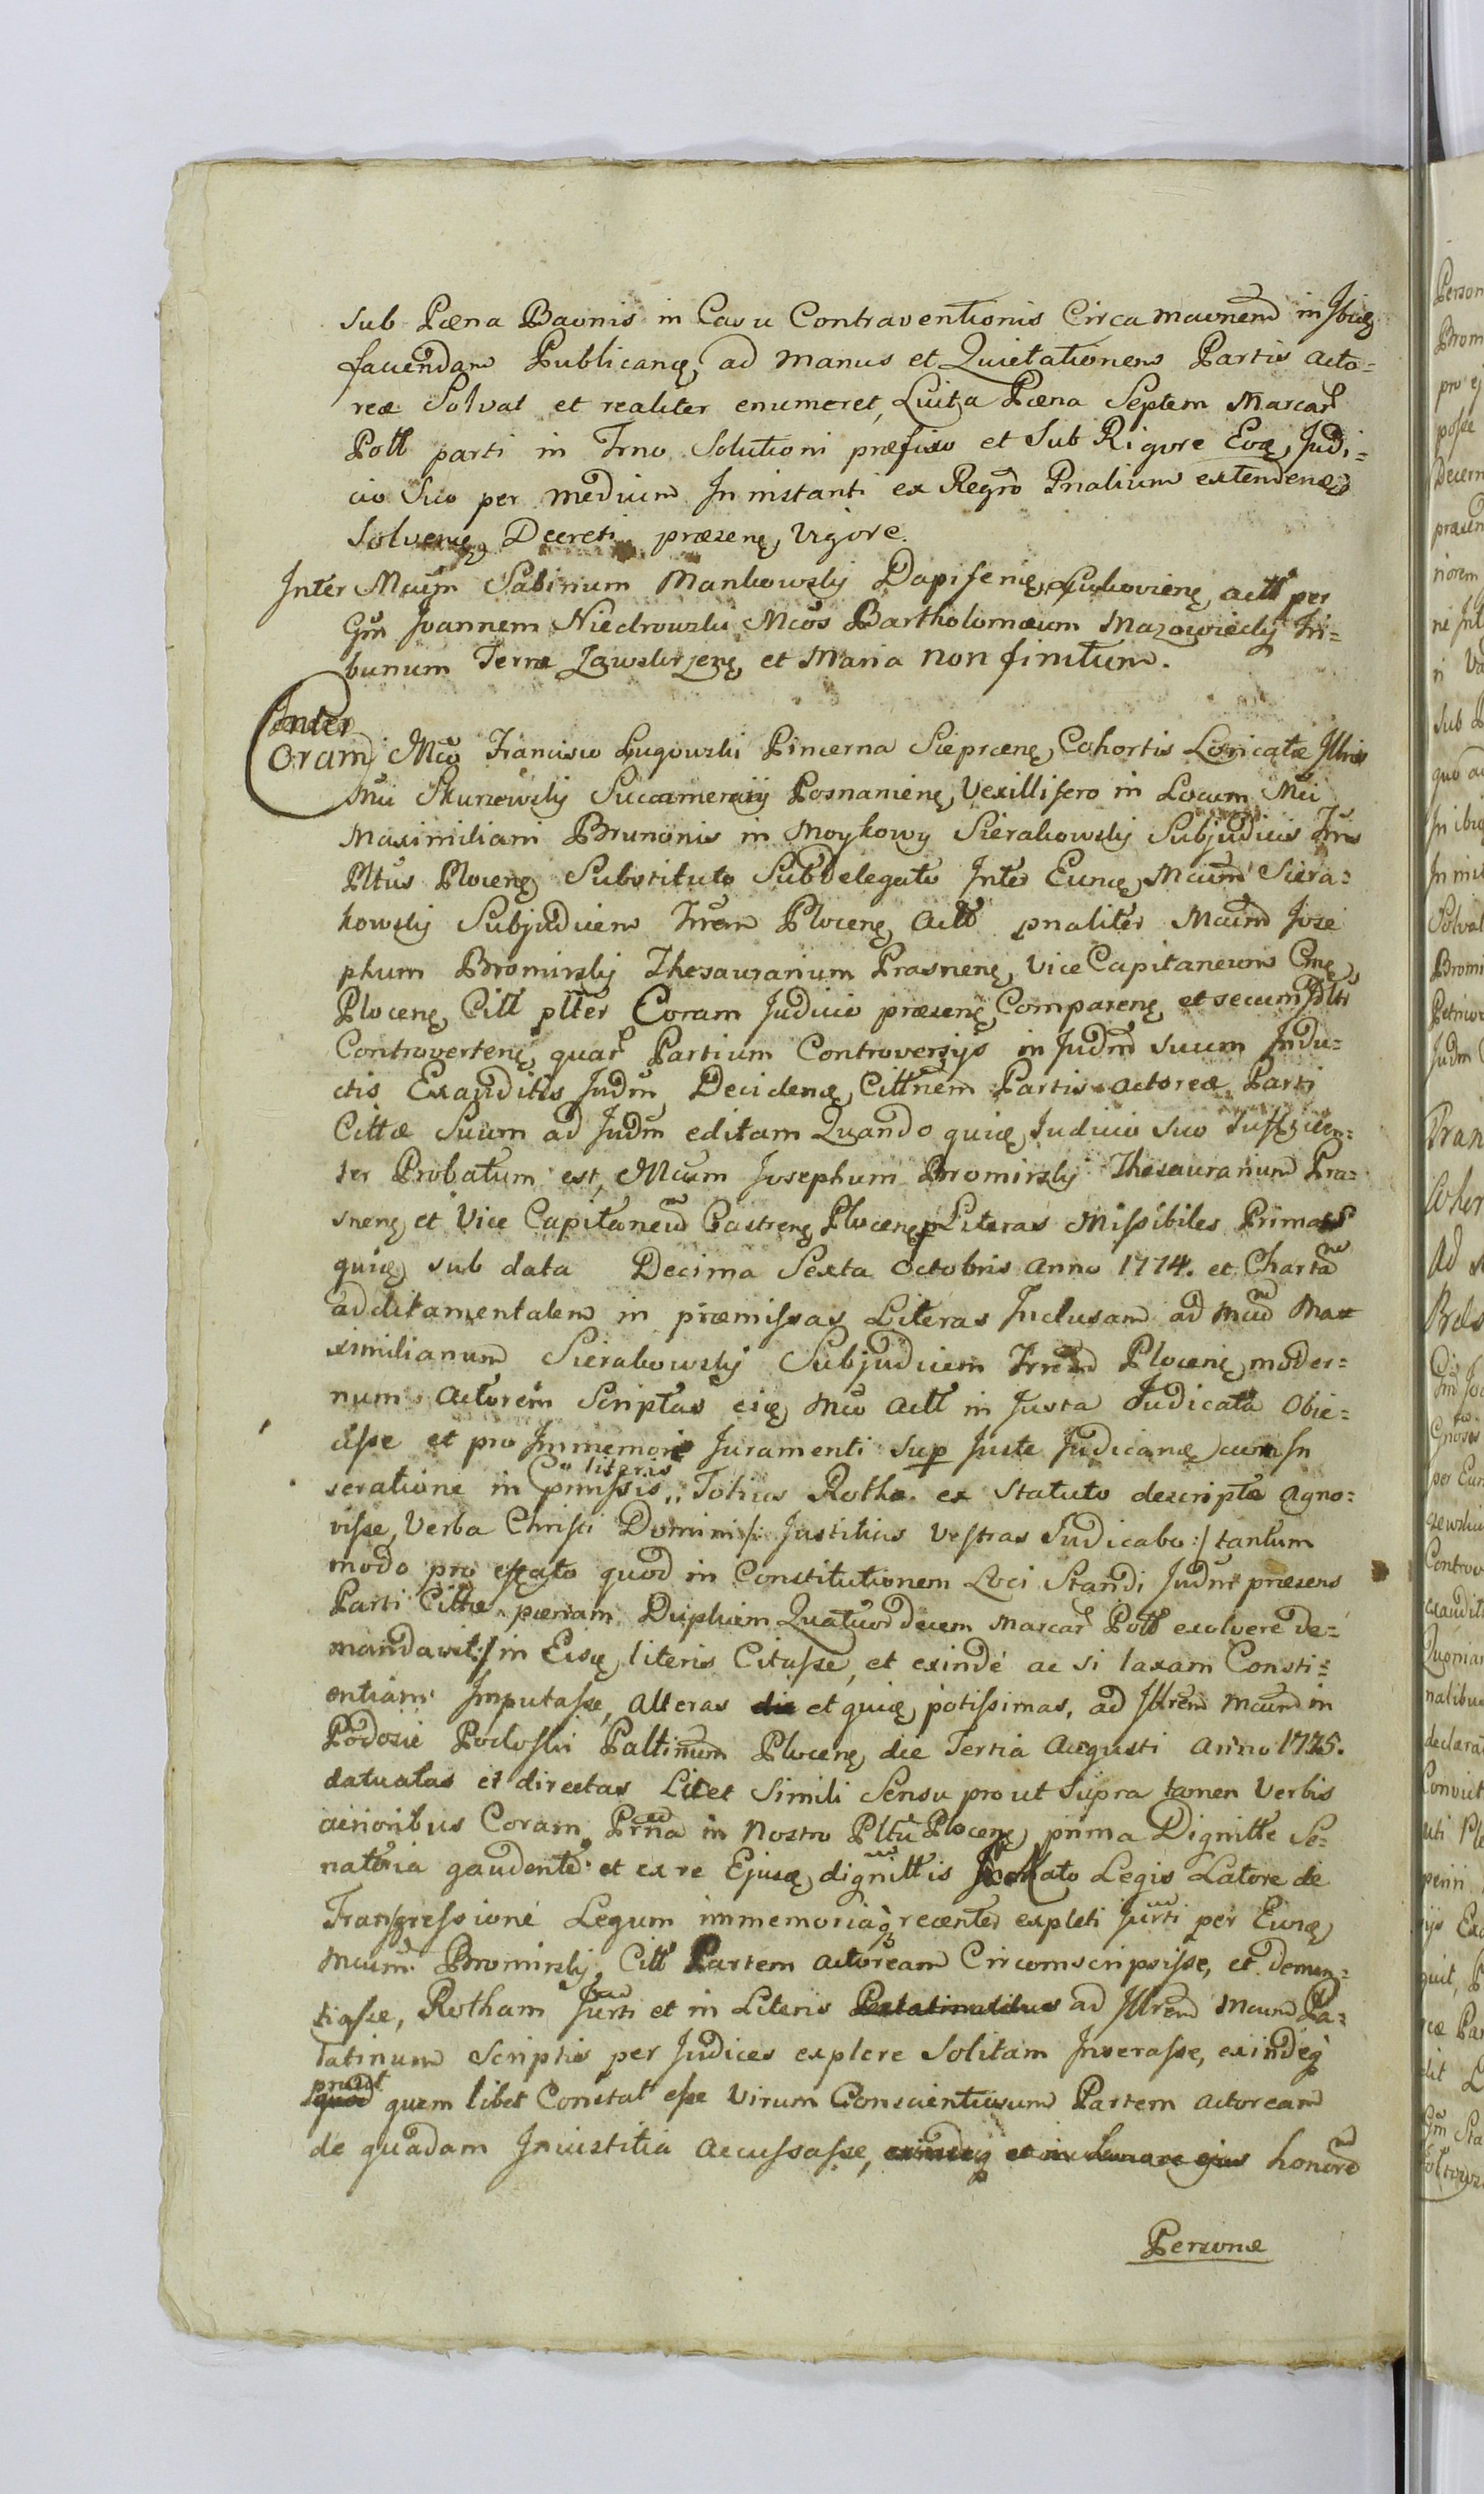 sub Pæna Baonis in Casu Contraventionis Circa maunend in Ibidę
faciendam Publicanę, ad manus et Quietationem Partis acto=
reæ Solvat et realiter enumeret, Luita Pæna Septem Marcar
Poll parti in Trno Solutioni præfixo et Sub Rigore Eoę, Judi=
cio Suo per medium In instanti ex Regro Pnalium extendenę
Solvenę, Decreti præsenę, Vigore.
Inter Mcum Sabinum Mankowsky Dapiferię, Lukovienę, actt per
Gm Joannem Niedrowski Mcos Bartholomæum Mazowiecky Tri=
bunum Terræ Zawskrzenę, et Maria non finitum.
Inter
Coram Mco Francisco Lugowski Pincerna Sieprcenę, Cohortis Loricatæ Illris
Mci Skurzewsky Succamerarij Posnanienę, Vexillifero in Locum Mci
Maximiliani Brunonis in Moykowy Sierakowsky Subjudicis Trris
Pltus Plocenę, Substituto Subdelegato Inter Eunę, Mcum Siera=
kowsky Subjudicem Trrem Plocenę, actt pnaliter Mcum Jose
phum Bromirsky Thesaurarium Prasnenę, Vice Capitaneum Cnę,
Plocenę, Citt pltter Coram Judicio præsenę, Comparenę, et secum Pltr
Controvertenę, quar Partium Controversijs in Judm suum Indu=
ctis Exauditis Judm Decidenę, Cittnem Partis actoreæ Parti
Cittæ Suum ad Judm editam Quando quię, Judicio Suo Sufficien=
ter Probatum est, Mcum Josephum Bromirsky Thesaurarium Pra=
snenę, et Vice Capitaneum Castrenę, Plocenę, p Literas Missibiles Primas
quię, sub data Decima Sexta Octobris Anno 1774. et Chartam
additamentalem in præmissas Literas Inclusam ad Mcum Ma
ximilianum Sierakowsky Subjudicem Trrem Plocenę, moder=
num Actorem Scriptas eię, Mco actt in Justa Judicata Obie=
cisse et pro Immemori Juramenti Sup Juste Judicanę, cum In
seratione in pmissis literis Totius Rothæ ex Statuto descriptæ agno=
visse, Verba Christi Domini /: Justitias Vestras Judicabo :/ tantum
modo pro effato quod in Constitutionem Loci Standi Judm præsens
Parti Cittæ pænam Duplicem Quatuordecem Marcar Poll exolvere de=
mandavit :/ in Eisę, literis Citasse, et exinde ac si laxam Consci=
entiam Imputasse, Alteras et quię, potissimas, ad Illrem Mcum in
Podosie Podoski Paltinum Plocenę, die Tertia Augusti Anno 1775.
datuatas et directas Licet Simili Sensu prout Supra tamen Verbis
Coram in Nostro Pltu Plocenę, prima Dignitte Se=
natoria gaudente et ex re Ejusę, dignittis Legis Latore de
Transgressione Legum immemoriaq recenter expleti Jurti per Eunę,
Mcum Bromirsky Citt Partem actoream Circomscripsisse, et demen=
tiasse, Rotham Jurti et in Literis ad Illrem Mcum Pa=
latinum Scriptis per Judices explere Solitam Inserasse, exindeq
prout quem libet Constat esse Virum Conscientiosum Partem actoream
de quadam Iniustitia accussasse, honore
Personæ